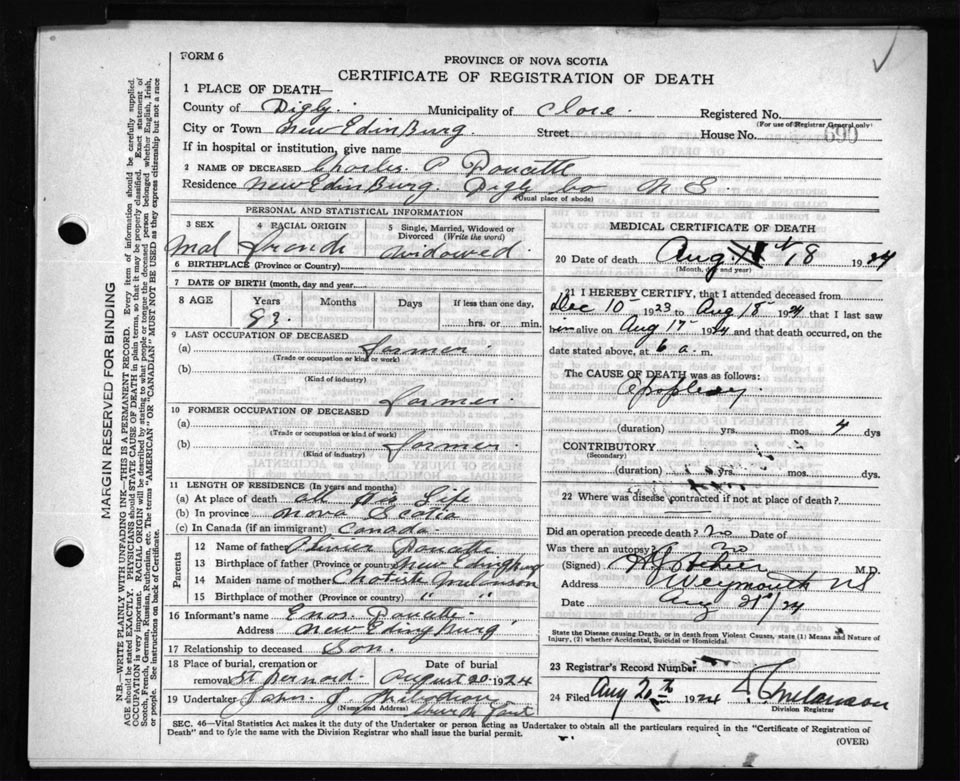 FORM 6
PROVINCE OF NOVA SCOTIA
CERTIFICATE OF REGISTRATION OF DEATH
1 PLACE OF DEATH—
County of Digby. Municipality of Clare. Registered No.
(For use of Registrar General only)
City or Town New EdinBurg. Street House No. 690
If in hospital or institution, give name
2 NAME OF DECEASED Charles P Doucette
Residence New EdinBurg. Digby Co N S
(Usual place of abode)
PERSONAL AND STATISTICAL INFORMATION
3 SEX 4 RACIAL ORIGIN 5 Single, Married, Widowed or Divorced (Write the word)
Mal French Widowed
6 BIRTHPLACE (Province or Country)
7 DATE OF BIRTH (month, day and year)
8 AGE Years Months Days If less than one day,
83. hrs. or min.
9 LAST OCCUPATION OF DECEASED
(a) farmer.
(Trade or occupation or kind or work)
(b)
(Kind of industry)
farmer.
10 FORMER OCCUPATION OF DECEASED
(a)
(Trade or occupation or kind of work)
(b) farmer.
(Kind of industry)
11 LENGTH OF RESIDENCE (In years and months)
(a) At place of death all His Life
(b) In province Nova Scotia
(c) In Canada (if an immigrant) Canada
Parents
12 Name of father Doucette
13 Birthplace of father (Province or country) New EdingBurg
14 Maiden name of mother
15 Birthplace of mother (Province or country) " "
16 Informant's name Enos Doucette.
Address New EdingBurg
17 Relationship to deceased Son.
18 Place of burial, cremation or removal St Bernard. Date of burial August 20 1924
19 Undertaker John J. Thibodeau
(Name and Address) Church Point
MEDICAL CERTIFICATE OF DEATH
20 Date of death Aug. 18 1924
(Month, day and year)
21 I HEREBY CERTIFY, that I attended deceased from
Dec 10 1923 to Aug 18 1924 that I last saw
him alive on Aug 17 1924 and that death occurred, on the
date stated above, at 6 a. m.
The CAUSE OF DEATH was as follows:
Apoplexy
(duration) yrs. mos. 4 dys
CONTRIBUTORY
(Secondary)
(duration) yrs. mos. dys.
22 Where was disease contracted if not at place of death?
Did an operation precede death? no Date of
Was there an autopsy? no
(Signed) M.D.
Address Weymouth NS
Date Aug 21/24
State the Disease causing Death, or in death from Violent Causes, state (1) Means and Nature of Injury, (2) whether Accidental, Suicidal or Homicidal.
23 Registrar's Record Number
24 Filed Aug 20th 1924 Melanson
Division Registrar
SEC. 46—Vital Statistics Act makes it the duty of the Undertaker or person acting as Undertaker to obtain all the particulars required in the "Certificate of Registration of
Death" and to fyle the same with the Division Registrar who shall issue the burial permit.
(OVER)
MARGIN RESERVED FOR BINDING
N.B.—WRITE PLAINLY WITH UNFADING INK—THIS IS A PERMANENT RECORD. Every item of information should be carefully supplied.
AGE should be stated EXACTLY. PHYSICIANS should STATE CAUSE OF DEATH in plain terms, so that it may be properly classified. Exact statement of
OCCUPATION is very important. RACIAL ORIGIN will be described by stating to what people or tongue the deceased person belonged whether English, Irish,
Scotch, French, German, Russian, Ruthenian, etc. The terms "AMERICAN" OR "CANADIAN" MUST NOT BE USED as they express citizenship but not a race
or people. See instructions on back of Certificate.